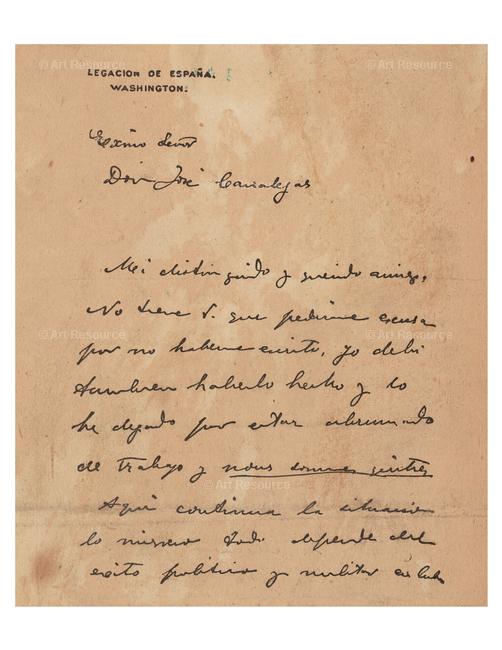 © Art Resource © Art Resource
LEGACION DE ESPAÑA.
WASHINGTON.
Exmo Señor
Don José Canalejas
Mi distinguido y querido amigo,
No tiene V. que pedirme excusa
© Art Resource © Art Resource
por no haberme escrito, yo debí
tambien haberlo hecho y lo
he dejado por estar abrumado
de trabajo y nous sommes quittes
© Art Resource
Aquí continua la situacion
lo mismo todo depende del
exito politico y militar en Cuba